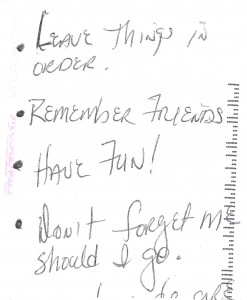 • Leave Things in
order.
• Remember Friends
• Have Fun!
• Don't forget me
should I go.